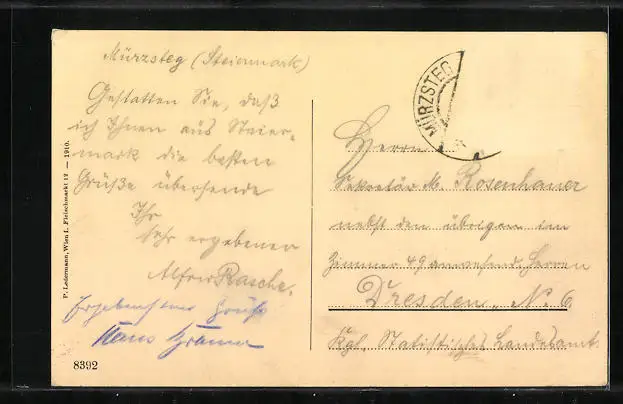 Mürzsteg (Steiermark)
Gestatten Sie, daß
ich Ihnen aus Steier-
mark die besten
Grüße übersende
Ihr
sehr ergebener
Alfred Rasche.
Ergebensten Gruß
Hans
P. Ledermann, Wien I., Fleischmarkt 12 — 1910.
8392
MÜRZSTEG
Herrn
Sekretär M. Rosenhauer
nebst den übrigen im
Zimmer 49 anwesend. Herren
Dresden, N. 6
Kgl. Statistisches Landesamt.